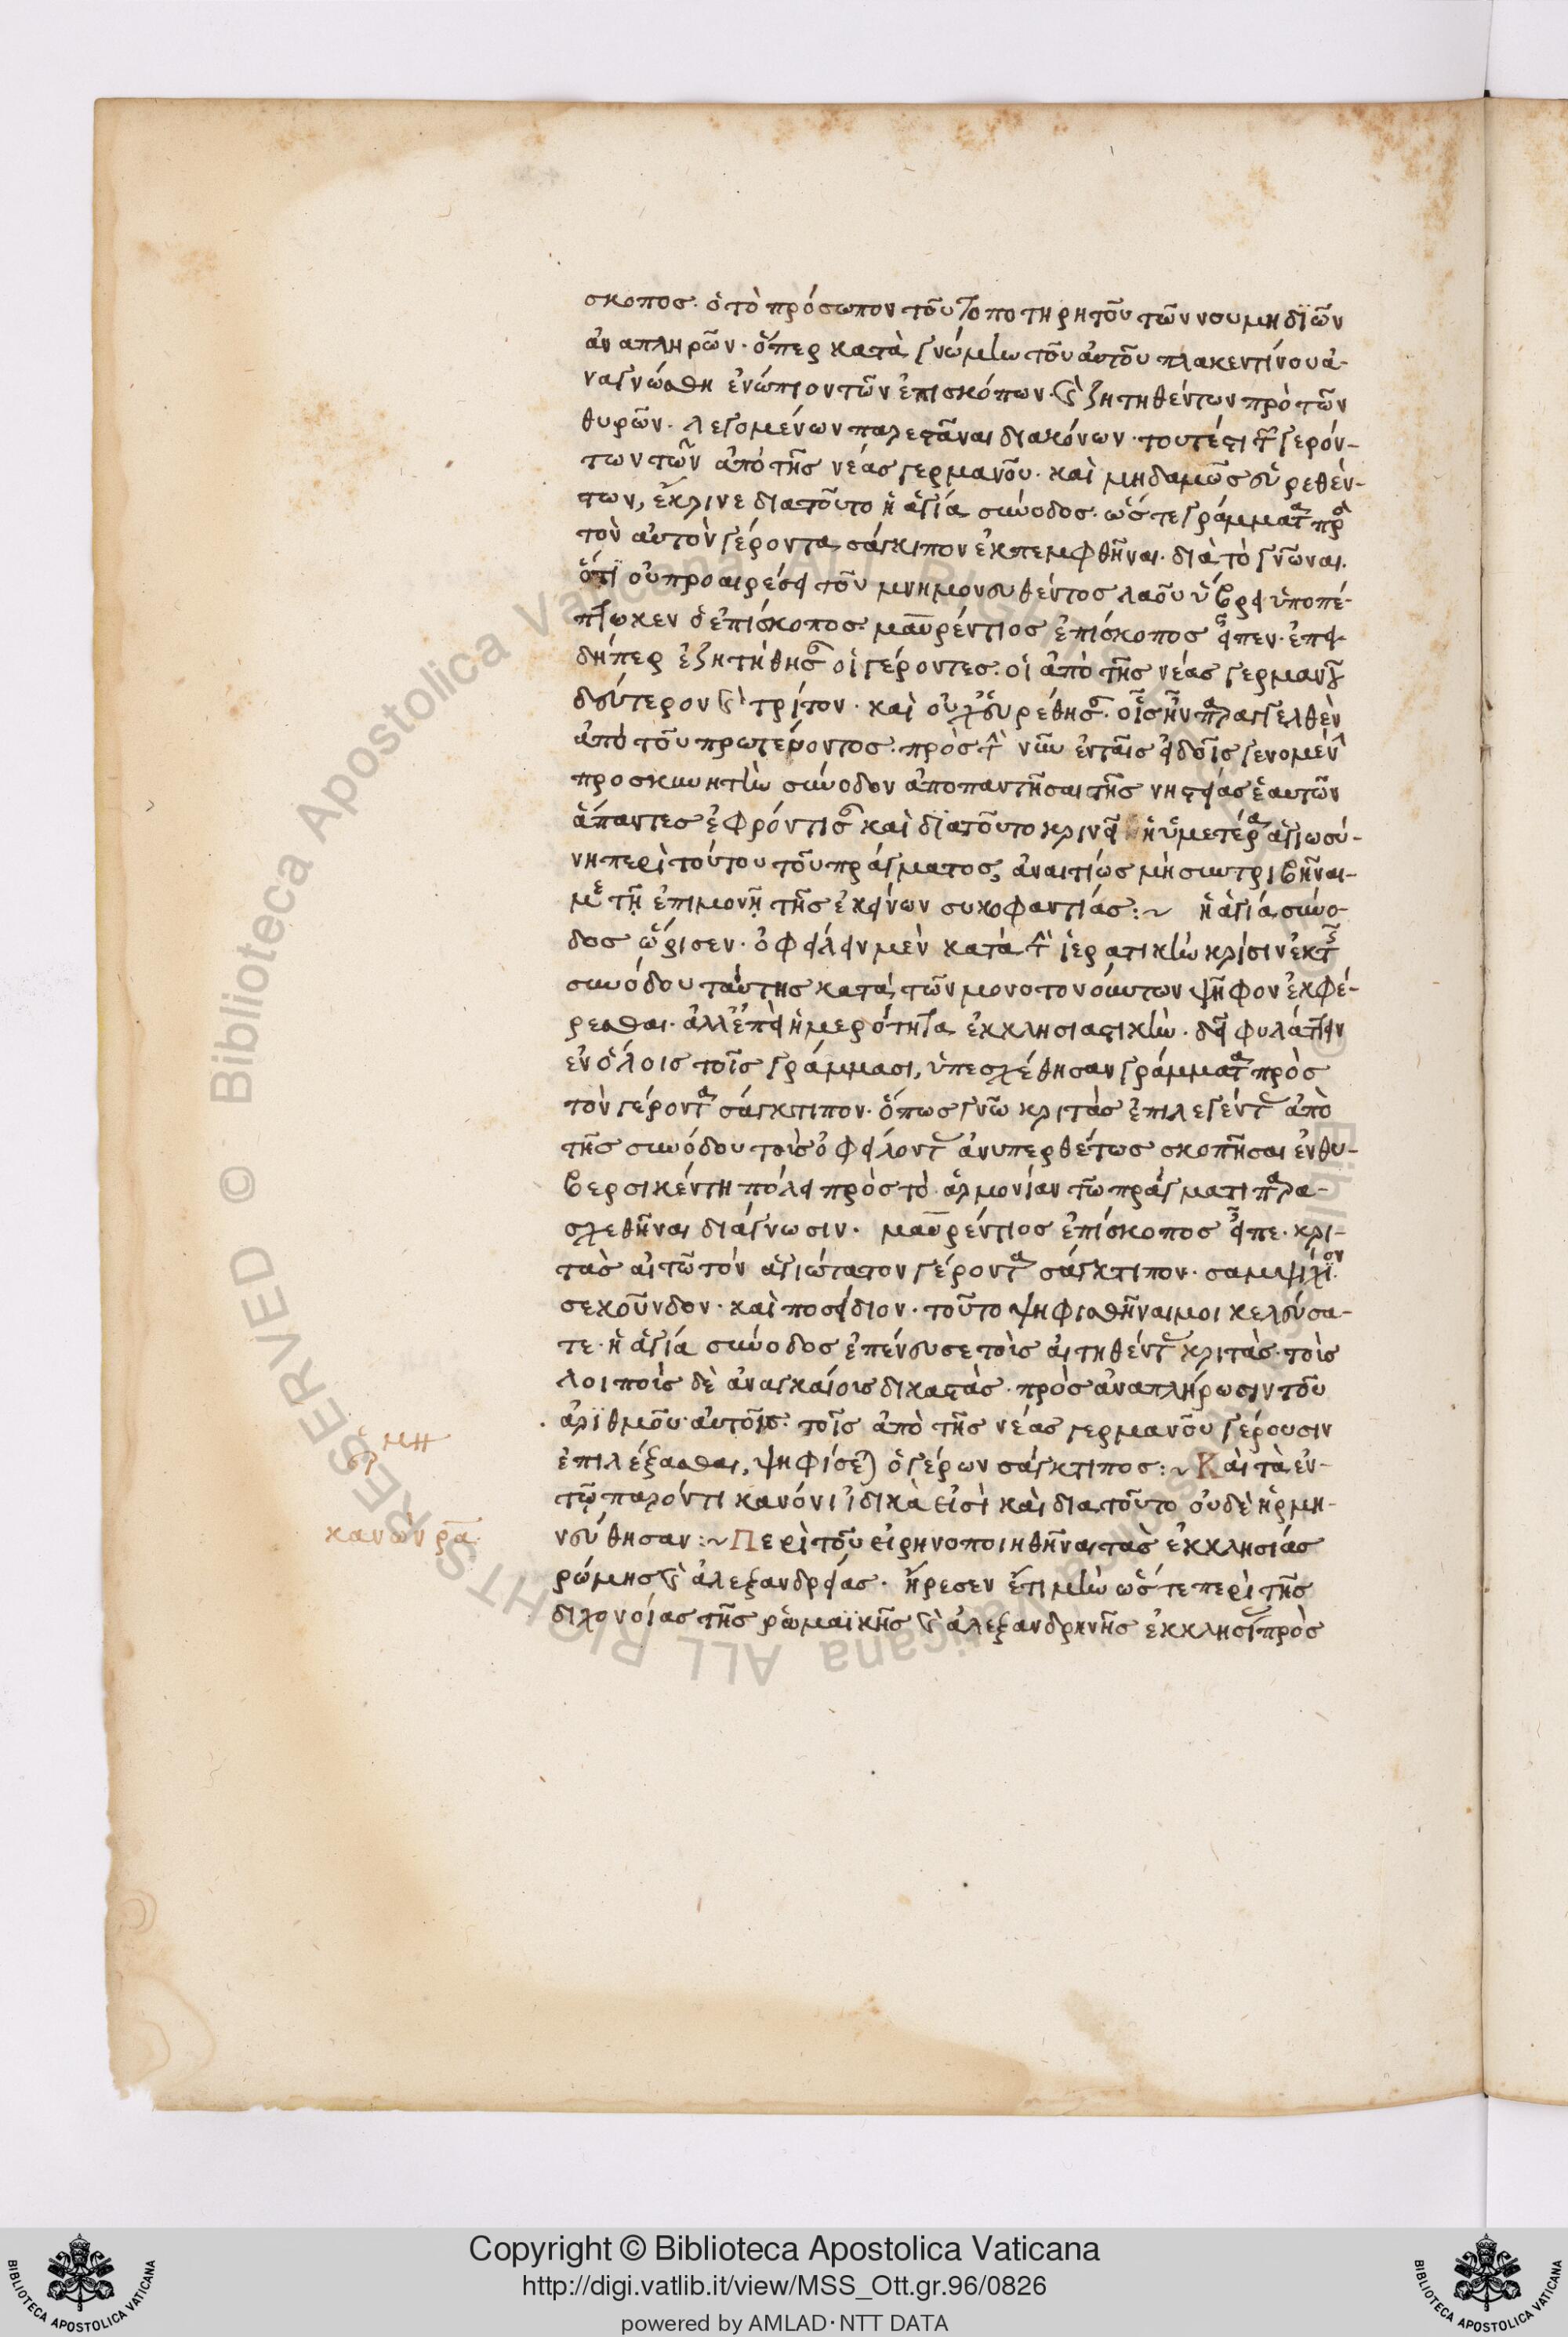 σκοπος. ὁ τὸ πρόσωπον τοῦ τοποτηρητοῦ τῶν νουμηδιῶν
ἀναπληρῶν. ὅπερ κατὰ γνώμην τοῦ αὐτοῦ πλακεντίνου ἀ-
ναγνώσθη ἐνώπιον τῶν ἐπισκόπων. καὶ ζητηθέντων πρὸ τῶν
θυρῶν. λεγομένων παρεστᾶναι διακόνων. τουτέστι τῶν γερόν-
των τῶν ἀπὸ τῆς νέας γερμανοῦ. καὶ μηδαμῶς εὑρεθέν-
των, ἔκλινε διατοῦτο ἡ ἁγία σύνοδος. ὥστε γράμματα πρὸς
τὸν αὐτὸν γέροντα σάγκιπον ἐκπεμφθῆναι. διὰ τὸ γνῶναι.
ὅτι οὐ προαιρέσει τοῦ μνημονευθέντος λαοῦ ὕβρει ὑποπέ-
πτωκεν ὁ ἐπίσκοπος. μαυρέντιος ἐπίσκοπος εἶπεν. ἐπει-
δήπερ ἐζητήθησαν οἱ γέροντες. οἱ ἀπὸ τῆς νέας γερμανοῦ
δεύτερον καὶ τρίτον. καὶ οὐχ εὑρέθησαν. οἷς ἦν παραγγελθὲν
ἀπὸ τοῦ πρωτεύοντος. πρὸς τὴν νῦν ἐν ταῖς εἰδοῖς γενομένην
προσκυνητὴν σύνοδον ἀποπαντῆσαι τῆς νηστείας ἑαυτῶν
ἅπαντες ἐφρόντισαν καὶ διατοῦτο κρινεῖ ἡ ὑμετέρα ἁγιωσύ-
νη περὶ τούτου τοῦ πράγματος, ἀναιτίως μὴ συντριβῆναι-
με τῇ ἐπιμονῇ τῆς ἐκείνων συκοφαντίας :~ ἡ ἁγία σύνο-
δος ὥρισεν. ὀφείλειν μὲν κατὰ τὴν ἱερατικὴν κρίσιν ἐκ τῆς
συνόδου ταύτης κατὰ τῶν μονοτονούντων ψῆφον ἐκφέ-
ρεσθαι. ἀλλ' ἐπεὶ ἡμερότητα ἐκκλησιαστικὴν. δεῖ φυλάττειν
ἐν ὅλοις τοῖς γράμμασι, ὑπεσχέθησαν γράμματα πρὸς
τὸν γέροντα σάγκτιπον. ὅπως γνῶ κριτὰς ἐπιλεγέντας ἀπὸ
τῆς συνόδου τοὺς ὀφείλοντας ἀνυπερθέτως σκοπῆσαι ἐν θυ-
βερσικέντη πόλει πρὸς τὸ ἁρμονίαν τῷ πράγματι παρα-
σχεθῆναι διάγνωσιν. μαυρέντιος ἐπίσκοπος εἶπε. κρι-
τὰς αἰτῶ τόν ἁγιώτατον γέροντα σάγκτιπον. σαμψίχιον.
σεκοῦνδον. καὶ ποσείδιον. τοῦτο ψηφισθῆναι μοι κελεύσα-
τε. ἡ ἁγία σύνοδος ἐπένευσε τοὺς αἰτηθέντας κριτὰς. τοὺς
λοιποὺς δὲ ἀναγκαίους δικαστὰς. πρὸς ἀναπλήρωσιν τοῦ
ἀριθμοῦ αὐτοῖς. τοῖς ἀπὸ τῆς νέας γερμανοῦ γέρουσιν
ἐπιλέξασθαι, ψηφίσεται ὁ γέρων σάγκτιπος :~ Καὶ τὰ ἐν-
τῷ παρόντι κανόνι ἰδικὰ εἰσὶ καὶ διατοῦτο οὐδὲ ἡρμη-
νεύθησαν :~ Περὶ τοῦ εἰρηνοποιηθῆναι τὰς ἐκκλησίας
κανὼν ρα
ρώμης καὶ ἀλεξανδρείας. ἤρεσεν ἔτι μὴν ὥστε περὶ τῆς
διχονοίας τῆς ρωμαϊκῆς καὶ ἀλεξανδρηνῆς ἐκκλησίας πρὸς